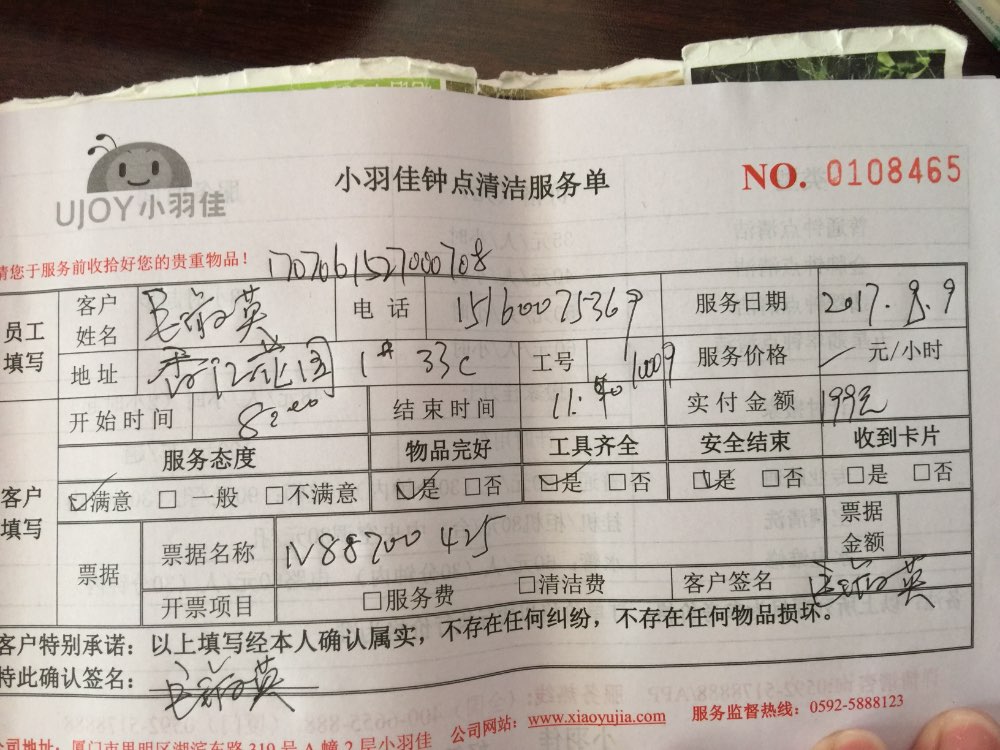 UJOY小羽佳
小羽佳钟点清洁服务单
NO. 0108465
请您于服务前收拾好您的贵重物品！
1707061527000708
员工填写
客户姓名
英
电话
15160075369
服务日期
2017.9.9
地址
1# 33C
工号
11009
服务价格
元/小时
开始时间
8:00
结束时间
11:40
实付金额
199元
服务态度
物品完好
工具齐全
安全结束
收到卡片
客户填写
☑满意 □一般 □不满意
☑是 □否
☑是 □否
☑是 □否
□是 □否
票据
票据名称
N88700425
票据金额
开票项目
□服务费
□清洁费
客户签名
英
客户特别承诺：以上填写经本人确认属实，不存在任何纠纷，不存在任何物品损坏。
特此确认签名：
英
公司地址：厦门市思明区湖滨东路319号A幢2层小羽佳
公司网站：www.xiaoyujia.com
服务监督热线：0592-5888123